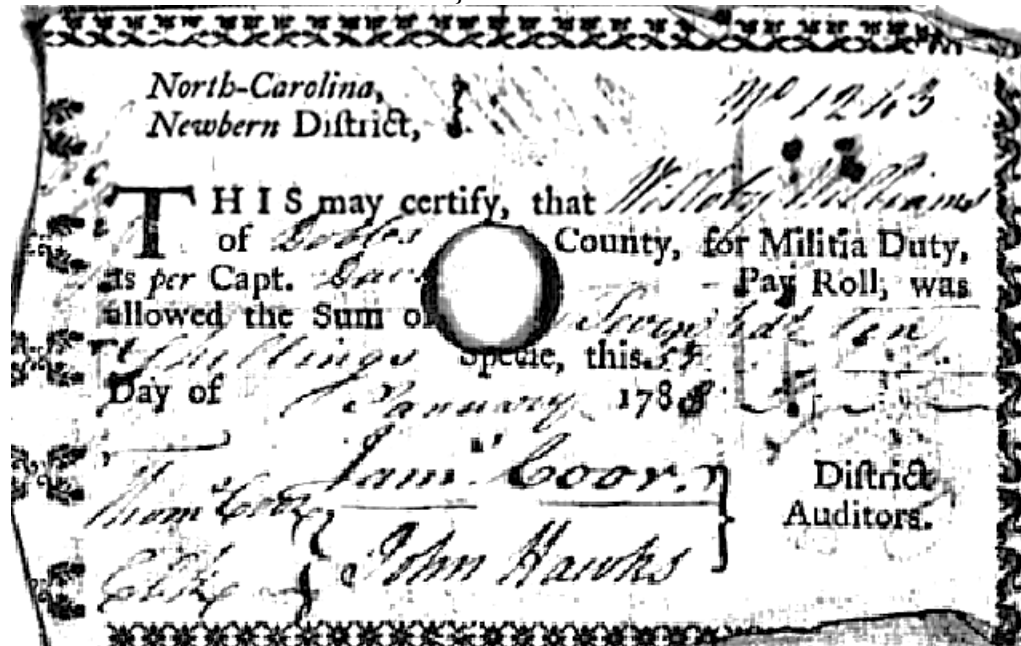 North-Carolina,
Newbern District, } No 1243
THIS may certify, that Willoby Williams
of Dobbs County, for Militia Duty,
as per Capt. Pay Roll, was
allowed the Sum of Seven Ten
Shillings Specie, this
Day of January 178
Jam. Coor. } District
John Hawks Auditors.
Thom Coor
Clk